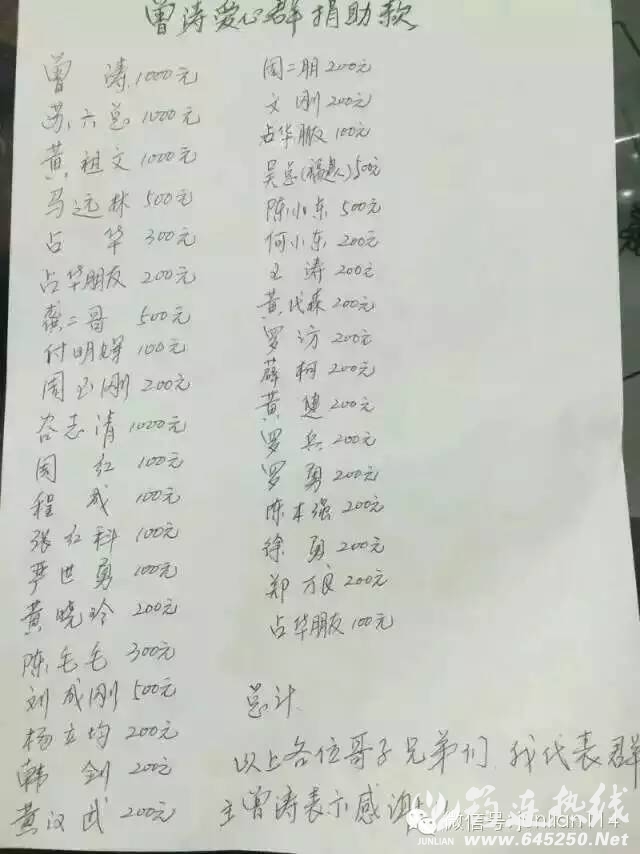 曾涛爱心群捐助款
曾涛 1000元
苏六总 1000元
黄祖文 1000元
马远林 500元
占华 300元
占华朋友 200元
龚二哥 500元
付明辉 100元
周玉刚 200元
谷志清 1000元
周红 100元
程成 100元
张红科 100元
严世勇 100元
黄晓玲 200元
陈毛毛 300元
刘成刚 500元
杨立均 200元
韩剑 200元
黄汉武 200元
周二朋 200元
文刚 200元
占华朋友 100元
吴总(福建人) 500元
陈小东 500元
何小东 200元
王涛 200元
黄代森 200元
罗访 200元
薛柯 200元
黄健 200元
罗兵 200元
罗勇 200元
陈本强 200元
徐勇 200元
郑方良 200元
占华朋友 100元
总计
以上各位哥子兄弟们,我代表群
主曾涛表示感谢
筠连热线
JUNLIAN
微信号:junlian114
www.645250.Net